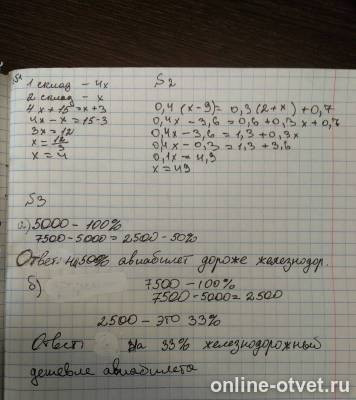 S1
1 склад – 4х
2 склад – х
4х + 15 = х + 3
4х – х = 15 - 3
3х = 12
х = 12/3
х = 4
S2
0,4 (х - 9) = 0,3 (2 + х) + 0,7
0,4х – 3,6 = 0,6 + 0,3х + 0,7
0,4х – 3,6 = 1,3 + 0,3х
0,4х – 0,3 = 1,3 + 3,6
0,1х = 4,9
х = 49
S3
а) 5000 – 100%
7500 - 5000 = 2500 - 50%
Ответ: на 50% авиабилет дороже железнодор.
б)
7500 – 100%
7500 - 5000 = 2500
2500 – это 33%
Ответ: на 33% железнодорожный
дешевле авиабилета
online-otvet.ru